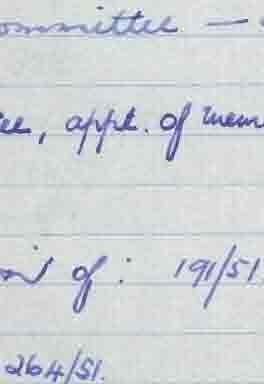 ommittee —
ee, appt. of mem
of : 191/51
264/51.